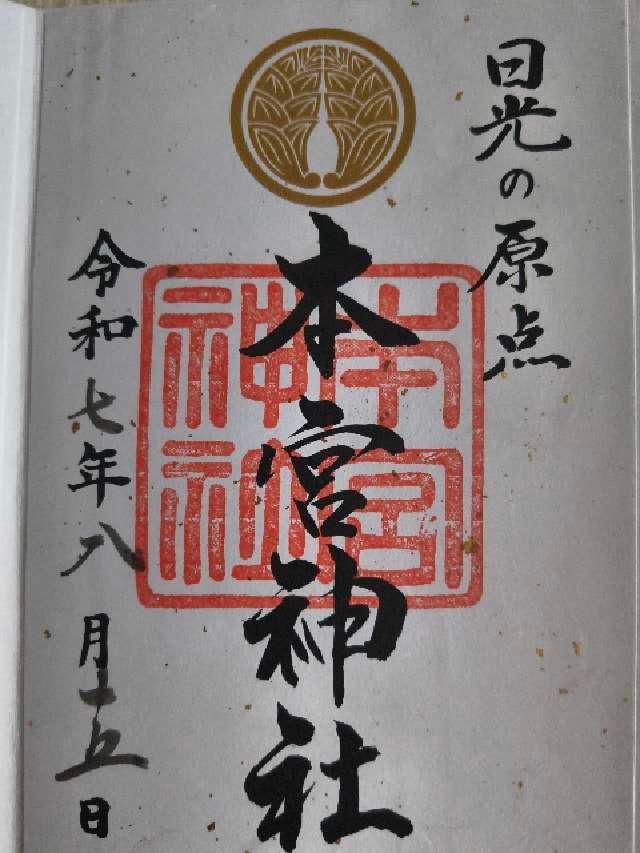 日光の原点
本宮神社
本宮神社
令和七年八月十五日